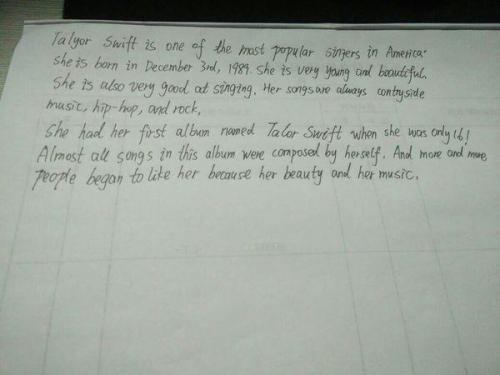 Talyor Swift is one of the most popular singers in America.
she is born in December 3rd, 1989. She is very young and beautiful.
She is also very good at singing. Her songs are always contryside
music, hip-hop, and rock.
She had her first album named Talor Swift when she was only 16!
Almost all songs in this album were composed by herself. And more and more
people began to like her because her beauty and her music.